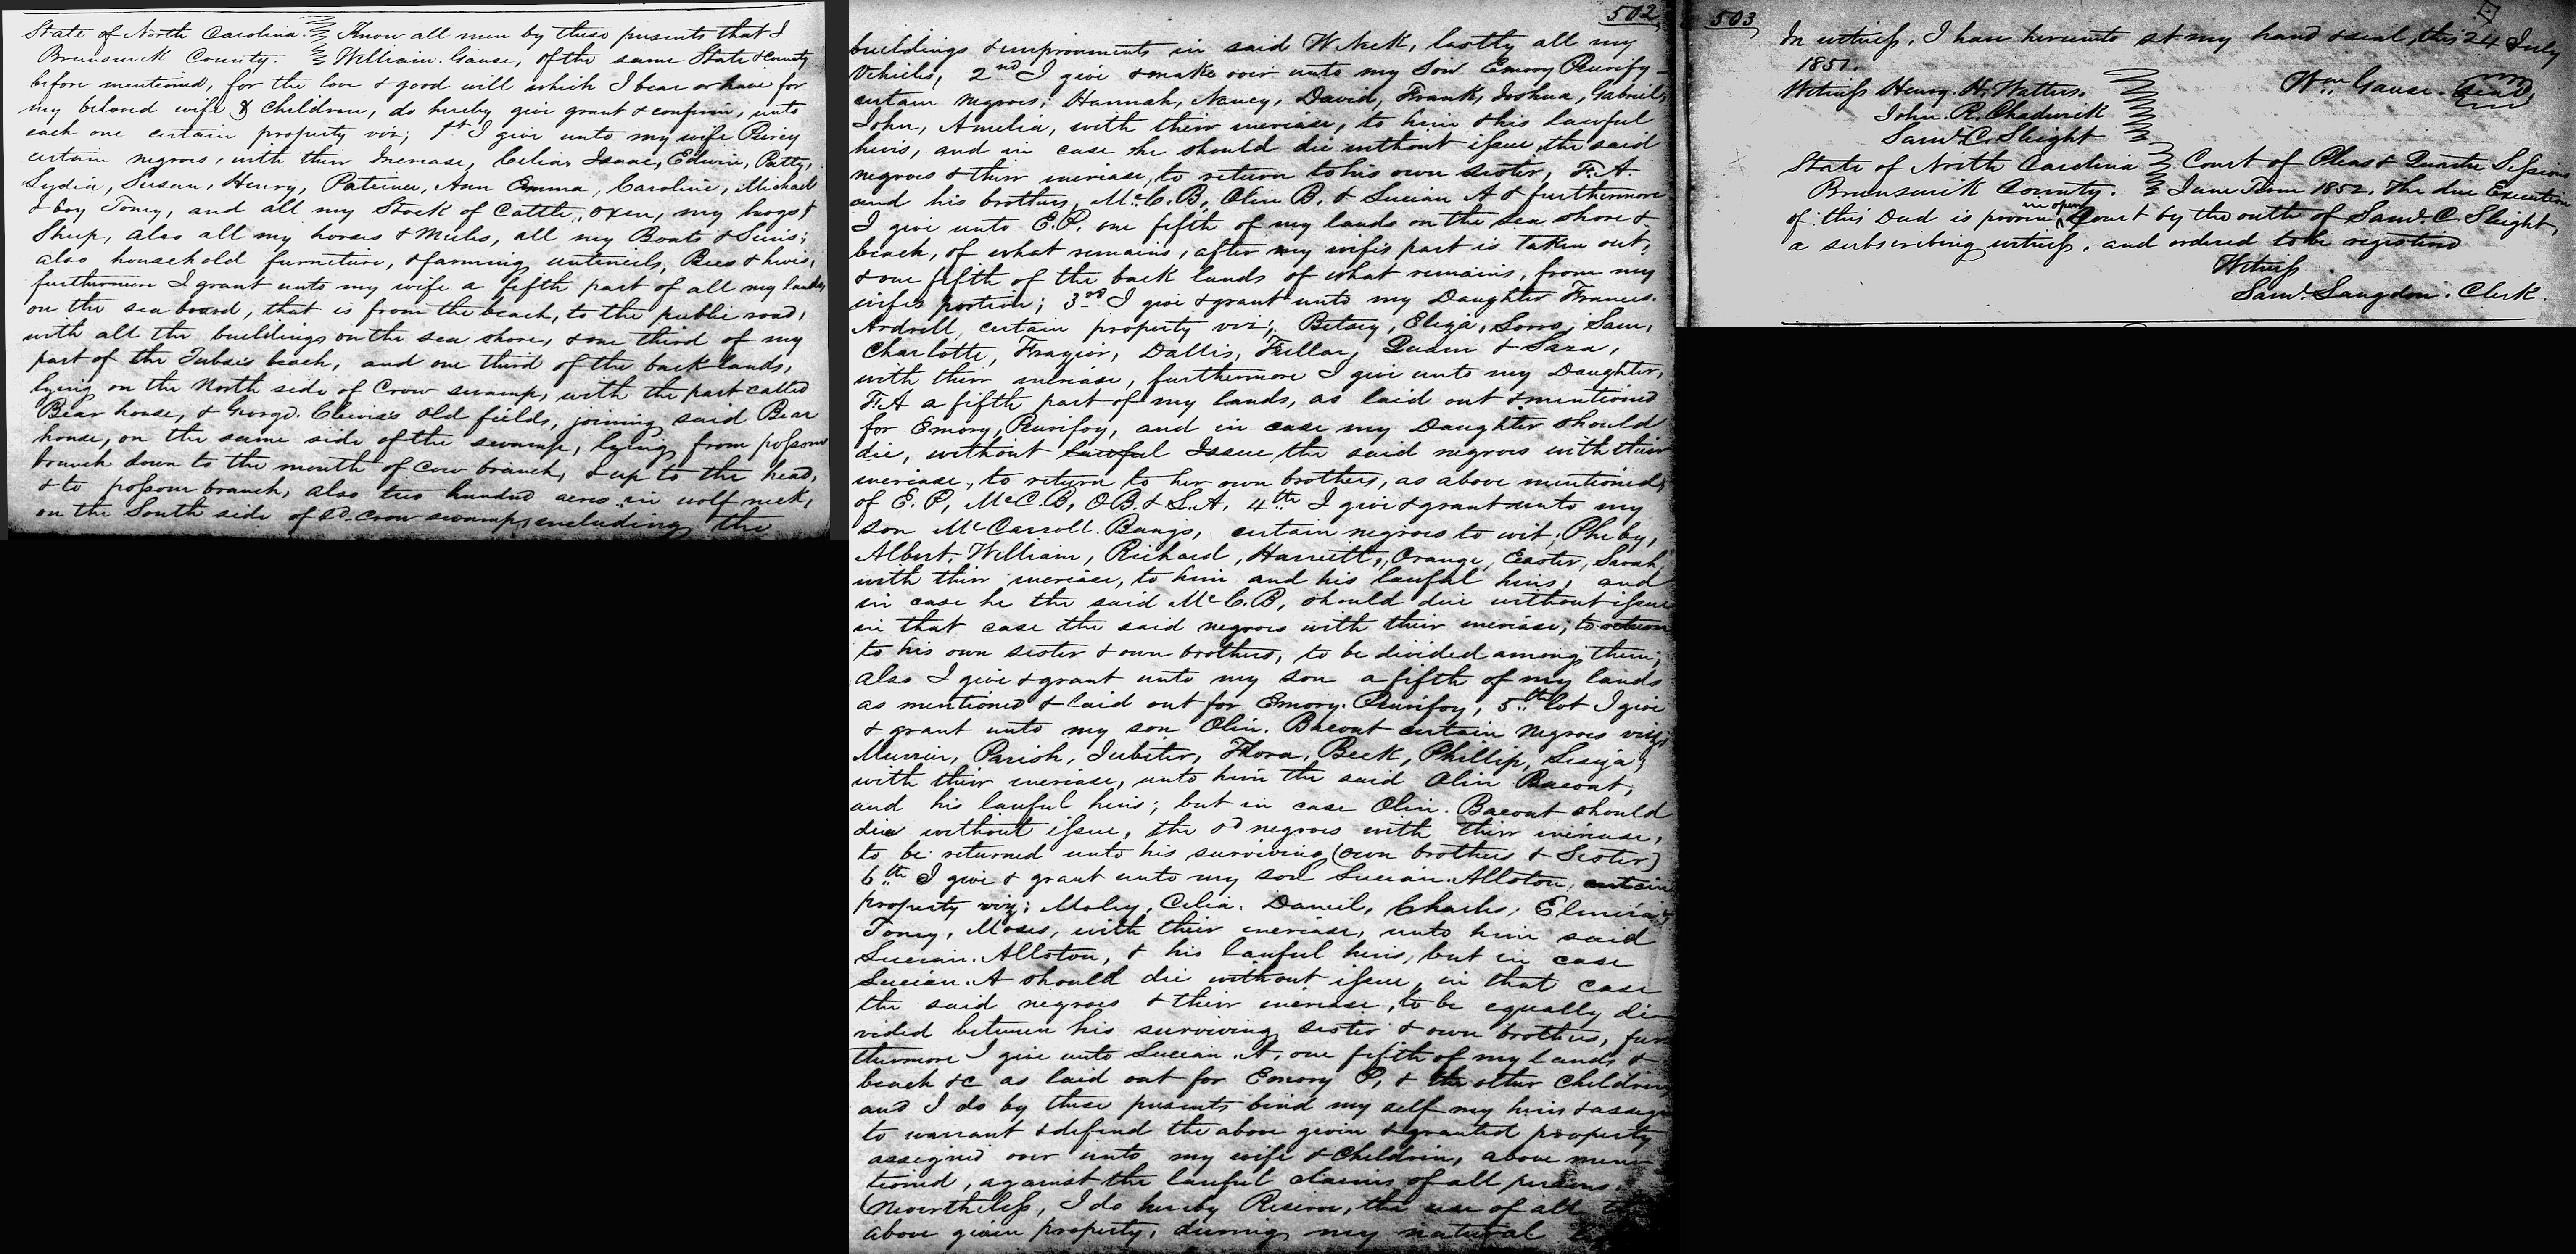 State of North Carolina. Know all men by these presents that I
Brunswick County. William. Gause, of the same State & County
before mentioned, for the love & good will which I bear or have for
my beloved wife & Children, do hereby give grant & confirm, unto
each one certain property viz; 1st I give unto my wife Percy
certain negroes, with their Increase, Celia, Isaac, Edwin, Patty,
Lydia, Susan, Henry, Patience, Ann Emma, Caroline, Michael
& boy Toney, and all my Stock of Cattle, oxen, my hogs &
Sheep, also all my horses & Mules, all my Boats & Seins;
also household furniture, & farming untensils, Bees & hives,
furthermore I grant unto my wife a fifth part of all my lands,
on the sea board, that is from the beach, to the public road,
with all the buildings on the sea shore, & one third of my
part of the Tubses beach, and one third of the back lands,
lying on the North side of Crow swamp, with the part called
Bear house, & George. Clewis's old fields, joining said Bear
house, on the same side of the swamp, lying from possom
branch down to the mouth of Cow branch, & up to the head,
& to possom branch, also two hundred acres in wolf neck,
on the South side of sd. Crow swamp, including the
502
buildings & improvements in said W Neck, lastly all my
Vehicles, 2nd I give & make over unto my Son Emory Purify
certain Negroes; Hannah, Nancy, David, Frank, Joshua, Gabriel,
John, Amelia, with their increase, to him & his lawful
heirs, and in case he should die without issue, the said
negroes & their increase, to return to his own sister, F. A.
and his brothers, Mc. C. B, Olin B. & Lucian A & furthermore
I give unto E. P. one fifth of my lands on the sea shore &
beach, of what remains, after my wifes part is taken out,
& one fifth of the back lands of what remains, from my
wifes portion; 3rd I give & grant unto my Daughter Frances.
Ardroll, certain property viz; Betsey, Eliza, Sam,
Charlotte, Frazior, Dallis, Fullar, Quam & Sara,
with their increase, furthermore I give unto my Daughter,
F. A a fifth part of my lands, as laid out & mentioned
for Emory, Purifoy, and in case my Daughter should
die, without lawful Issue, the said negroes with their
increase, to return to her own brothers, as above mentioned,
of E. P, Mc C. B, O B. & L. A. 4th I give & grant unto my
son Mc Carroll. Bangs, certain negroes to wit; Pheby,
Albert, William, Richard, Harriett, Orange, Easter, Sarah,
with their increase, to him and his lawful heirs, and
in case he the said Mc C. B, should die without issue
in that case the said negroes with their increase, to return
to his own sister & own brothers, to be divided among them;
also I give & grant unto my son a fifth of my lands
as mentioned & laid out for Emory. Purifoy, 5th lot I give
& grant unto my son Olin. Bacout certain Negroes viz;
Murrier, Parish, Jubiter, Flora, Beck, Phillip, Lesiza,
with their increase, unto him the said Olin Bacout,
and his lawful heirs; but in case Olin. Bacout should
die without issue, the sd negroes with their increase,
to be returned unto his surviving (own brothers & Sister)
6th I give & grant unto my son Lucian. Allston, certain
property viz; Moley, Celia. Daniel, Charles, Elmira,
Toney, Moses, with their increase, unto him said
Lucian. Allston, & his lawful heirs, but in case
Lucian. A should die without issue, in that case
the said negroes & their increase, to be equally di-
vided between his surviving sister & own brothers, fur
thermore I give unto Lucian. A, one fifth of my lands &
beach &c as laid out for Emory P, & the other Children,
and I do by these presents bind my self my heirs & assigns
to warrant & defend the above given & granted property
assigned over unto my wife & Children, above men-
tioned, against the lawful claims of all persons.
(Nevertheless, I do hereby Reserve, the use of all
above given property, during my natural
503
In witness, I have hereunto set my hand & seal, this 24 July
1851.
Wm. Gause. Seal
Witness Henry. H. Watters.
John. R. Chadwick
Saml. C. Sleight
State of North Carolina Court of Pleas & Quarter Sessions
Brunswick County. June Term 1852. The due Execution
of this Deed is proven in open Court by the oath of Saml. C. Sleight,
a subscribing witness, and ordered to be registered
Witness
Saml. Langdon. Clerk.